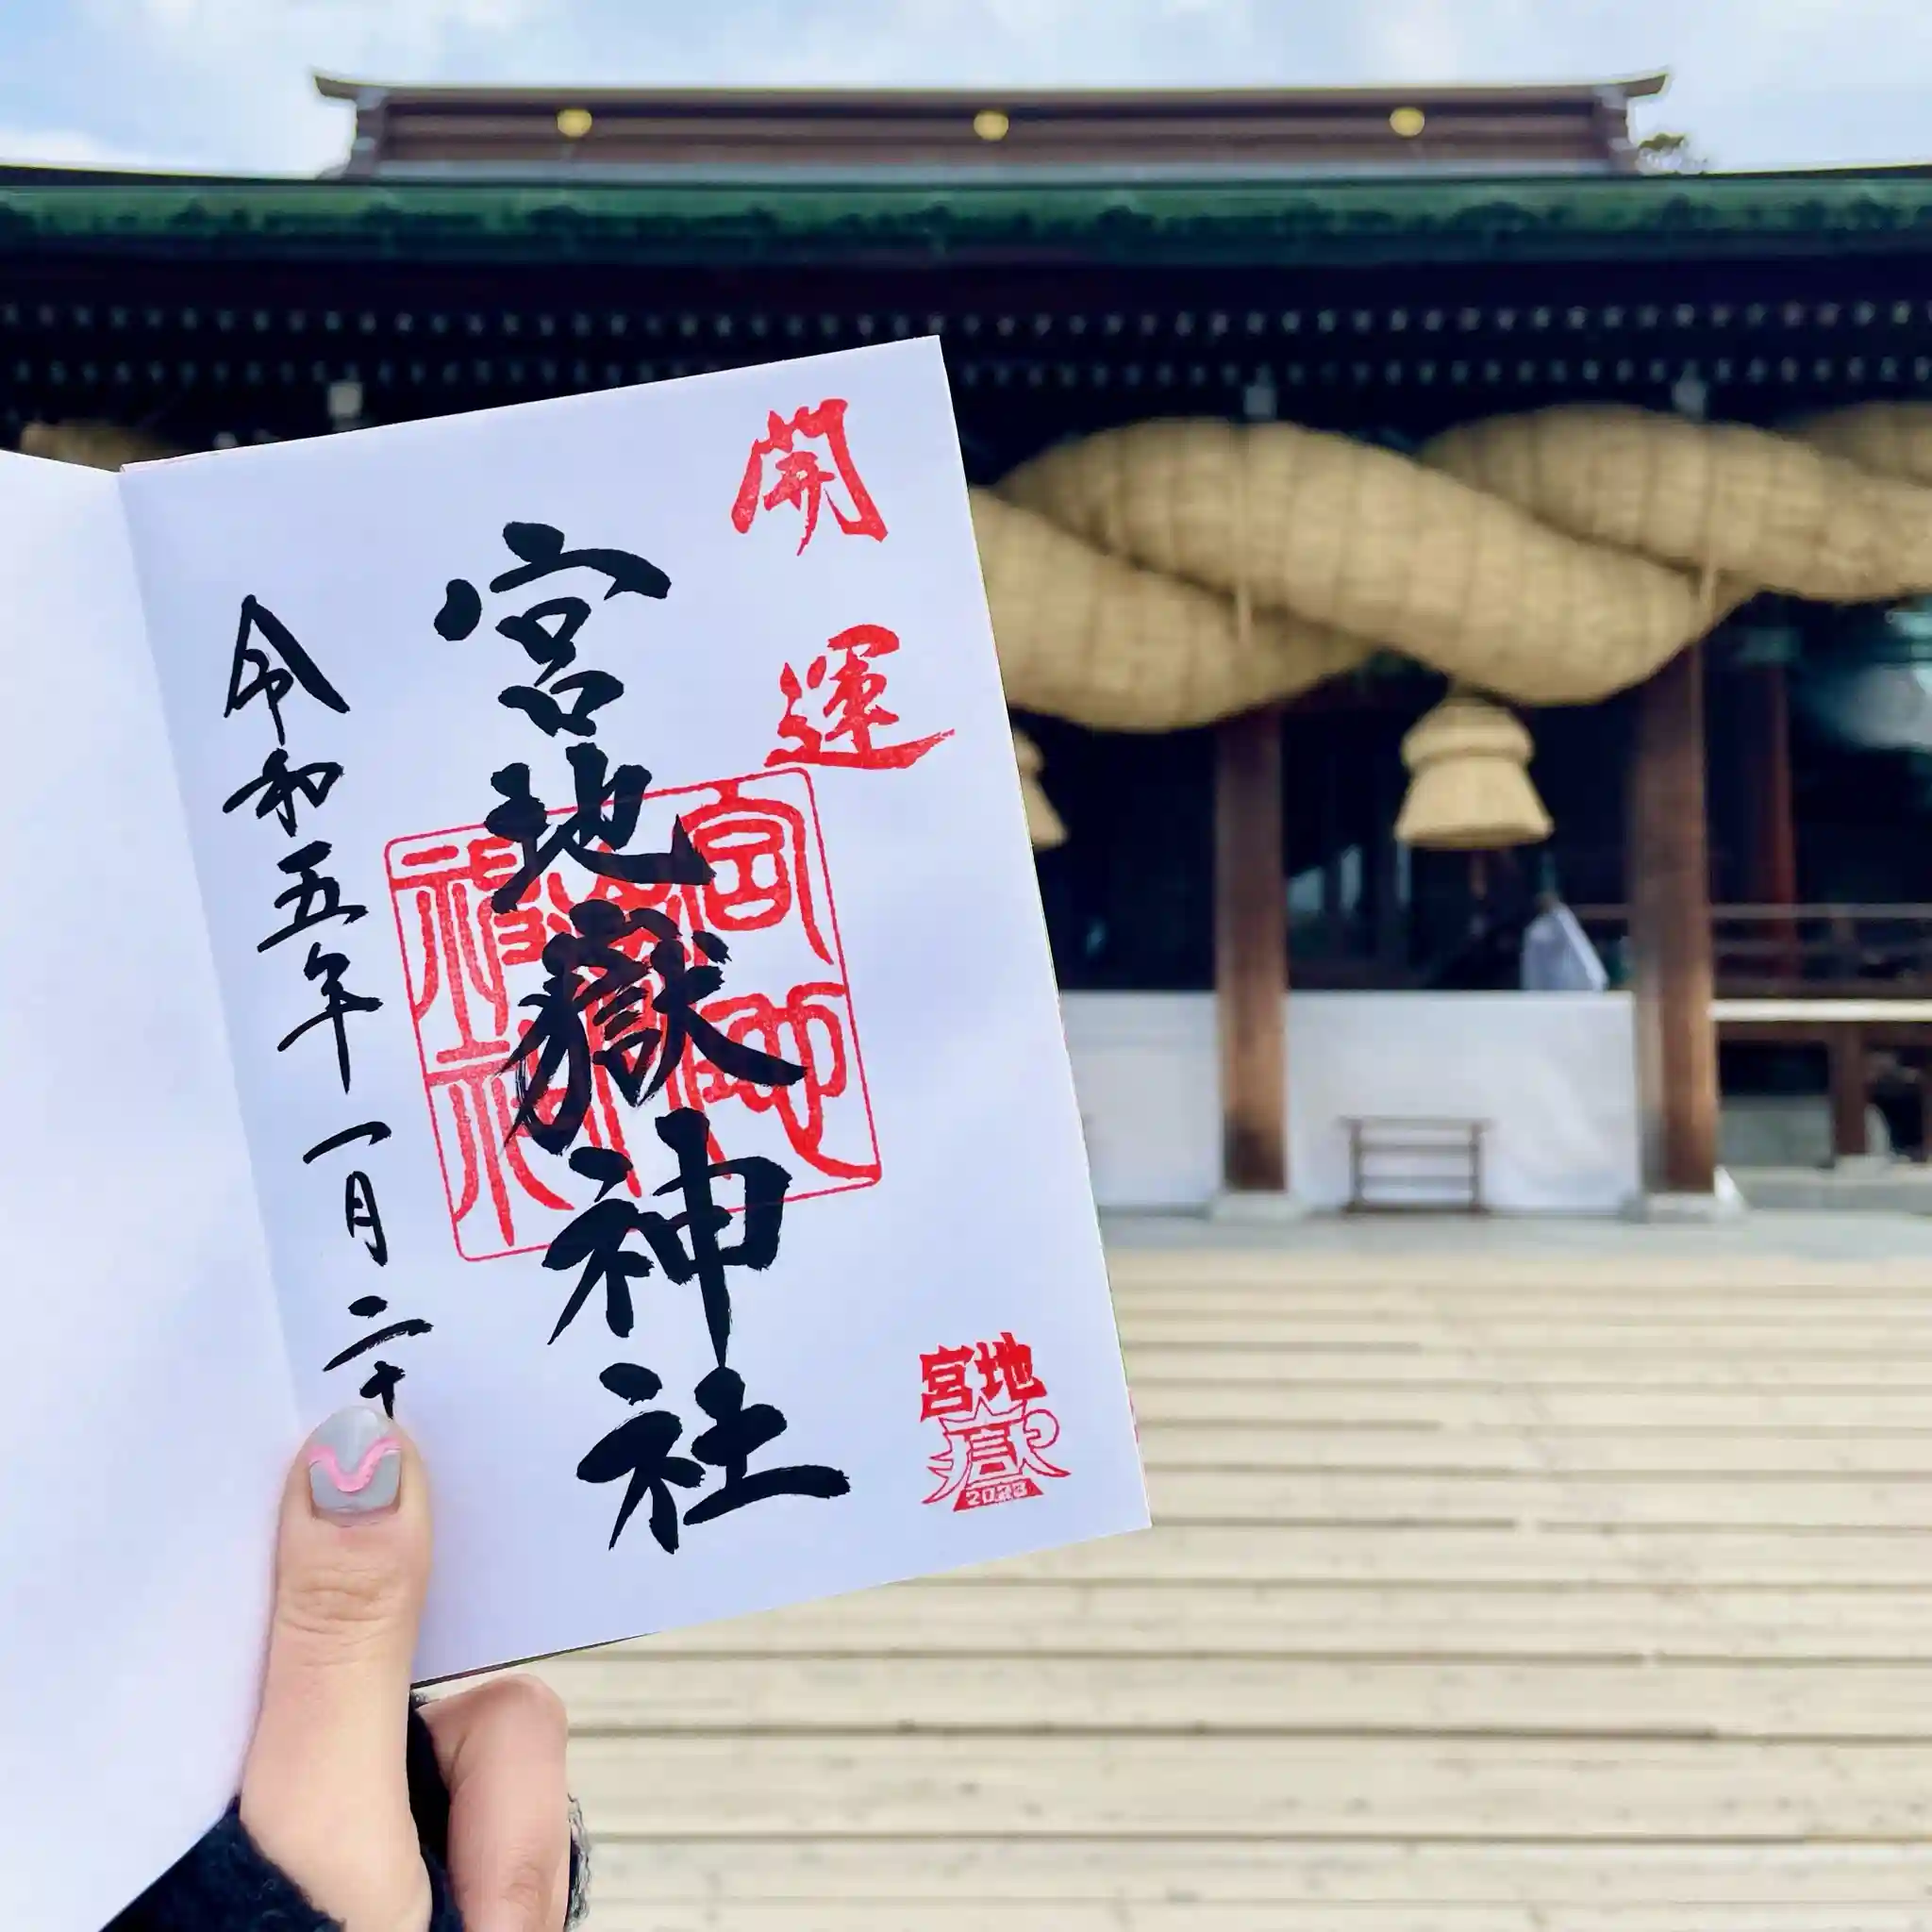 開運
宮地嶽神社
令和五年一月二十
宮地
嶽
2023